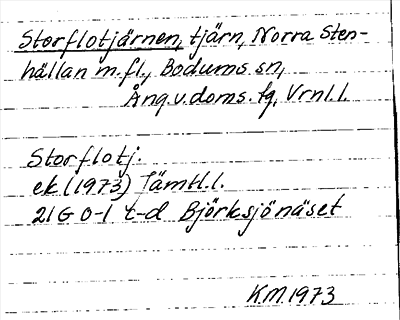 Storflotjärnen, tjärn, Norra Sten-
hällan m.fl., Bodums sn,
Ång.v.doms. fg, Vrnl.l.
Storflotj.
ek (1973) Jämtl.l.
21 G 0-1 c-d Björksjönäset
KM 1973